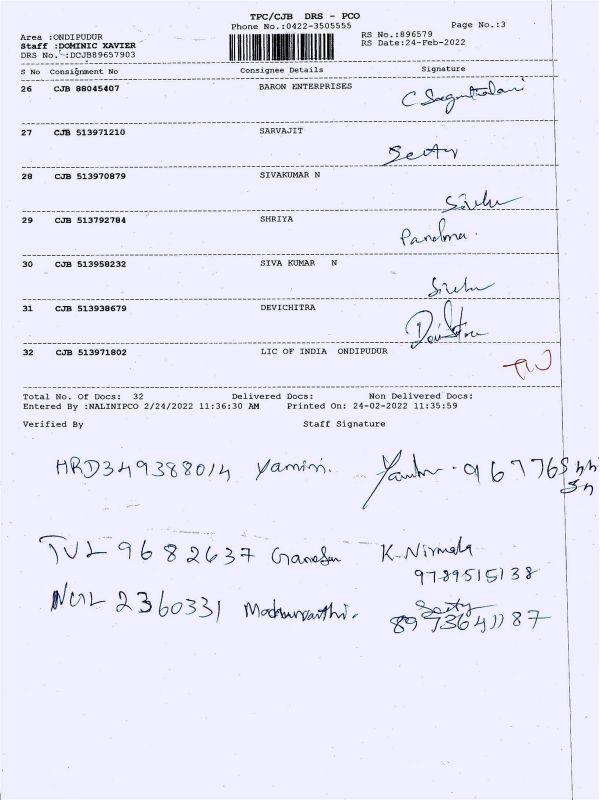 TPC/CJB DRS - PCO
Phone No.:0422-3505555 Page No.:3
Area :ONDIPUDUR RS No.:896579
Staff :DOMINIC XAVIER RS Date:24-Feb-2022
DRS No. :DCJB89657903
S No Consignment No Consignee Details Signature
26 CJB 88045407 BARON ENTERPRISES
27 CJB 513971210 SARVAJIT
28 CJB 513970879 SIVAKUMAR N
29 CJB 513792784 SHRIYA
30 CJB 513958232 SIVA KUMAR N
31 CJB 513938679 DEVICHITRA
32 CJB 513971802 LIC OF INDIA ONDIPUDUR
Total No. Of Docs: 32 Delivered Docs: Non Delivered Docs:
Entered By :NALINIPCO 2/24/2022 11:36:30 AM Printed On: 24-02-2022 11:35:59
Verified By Staff Signature
HRD349388014 Yamini.
TVL 9682637 K. Nirmala
9789515138
2360331